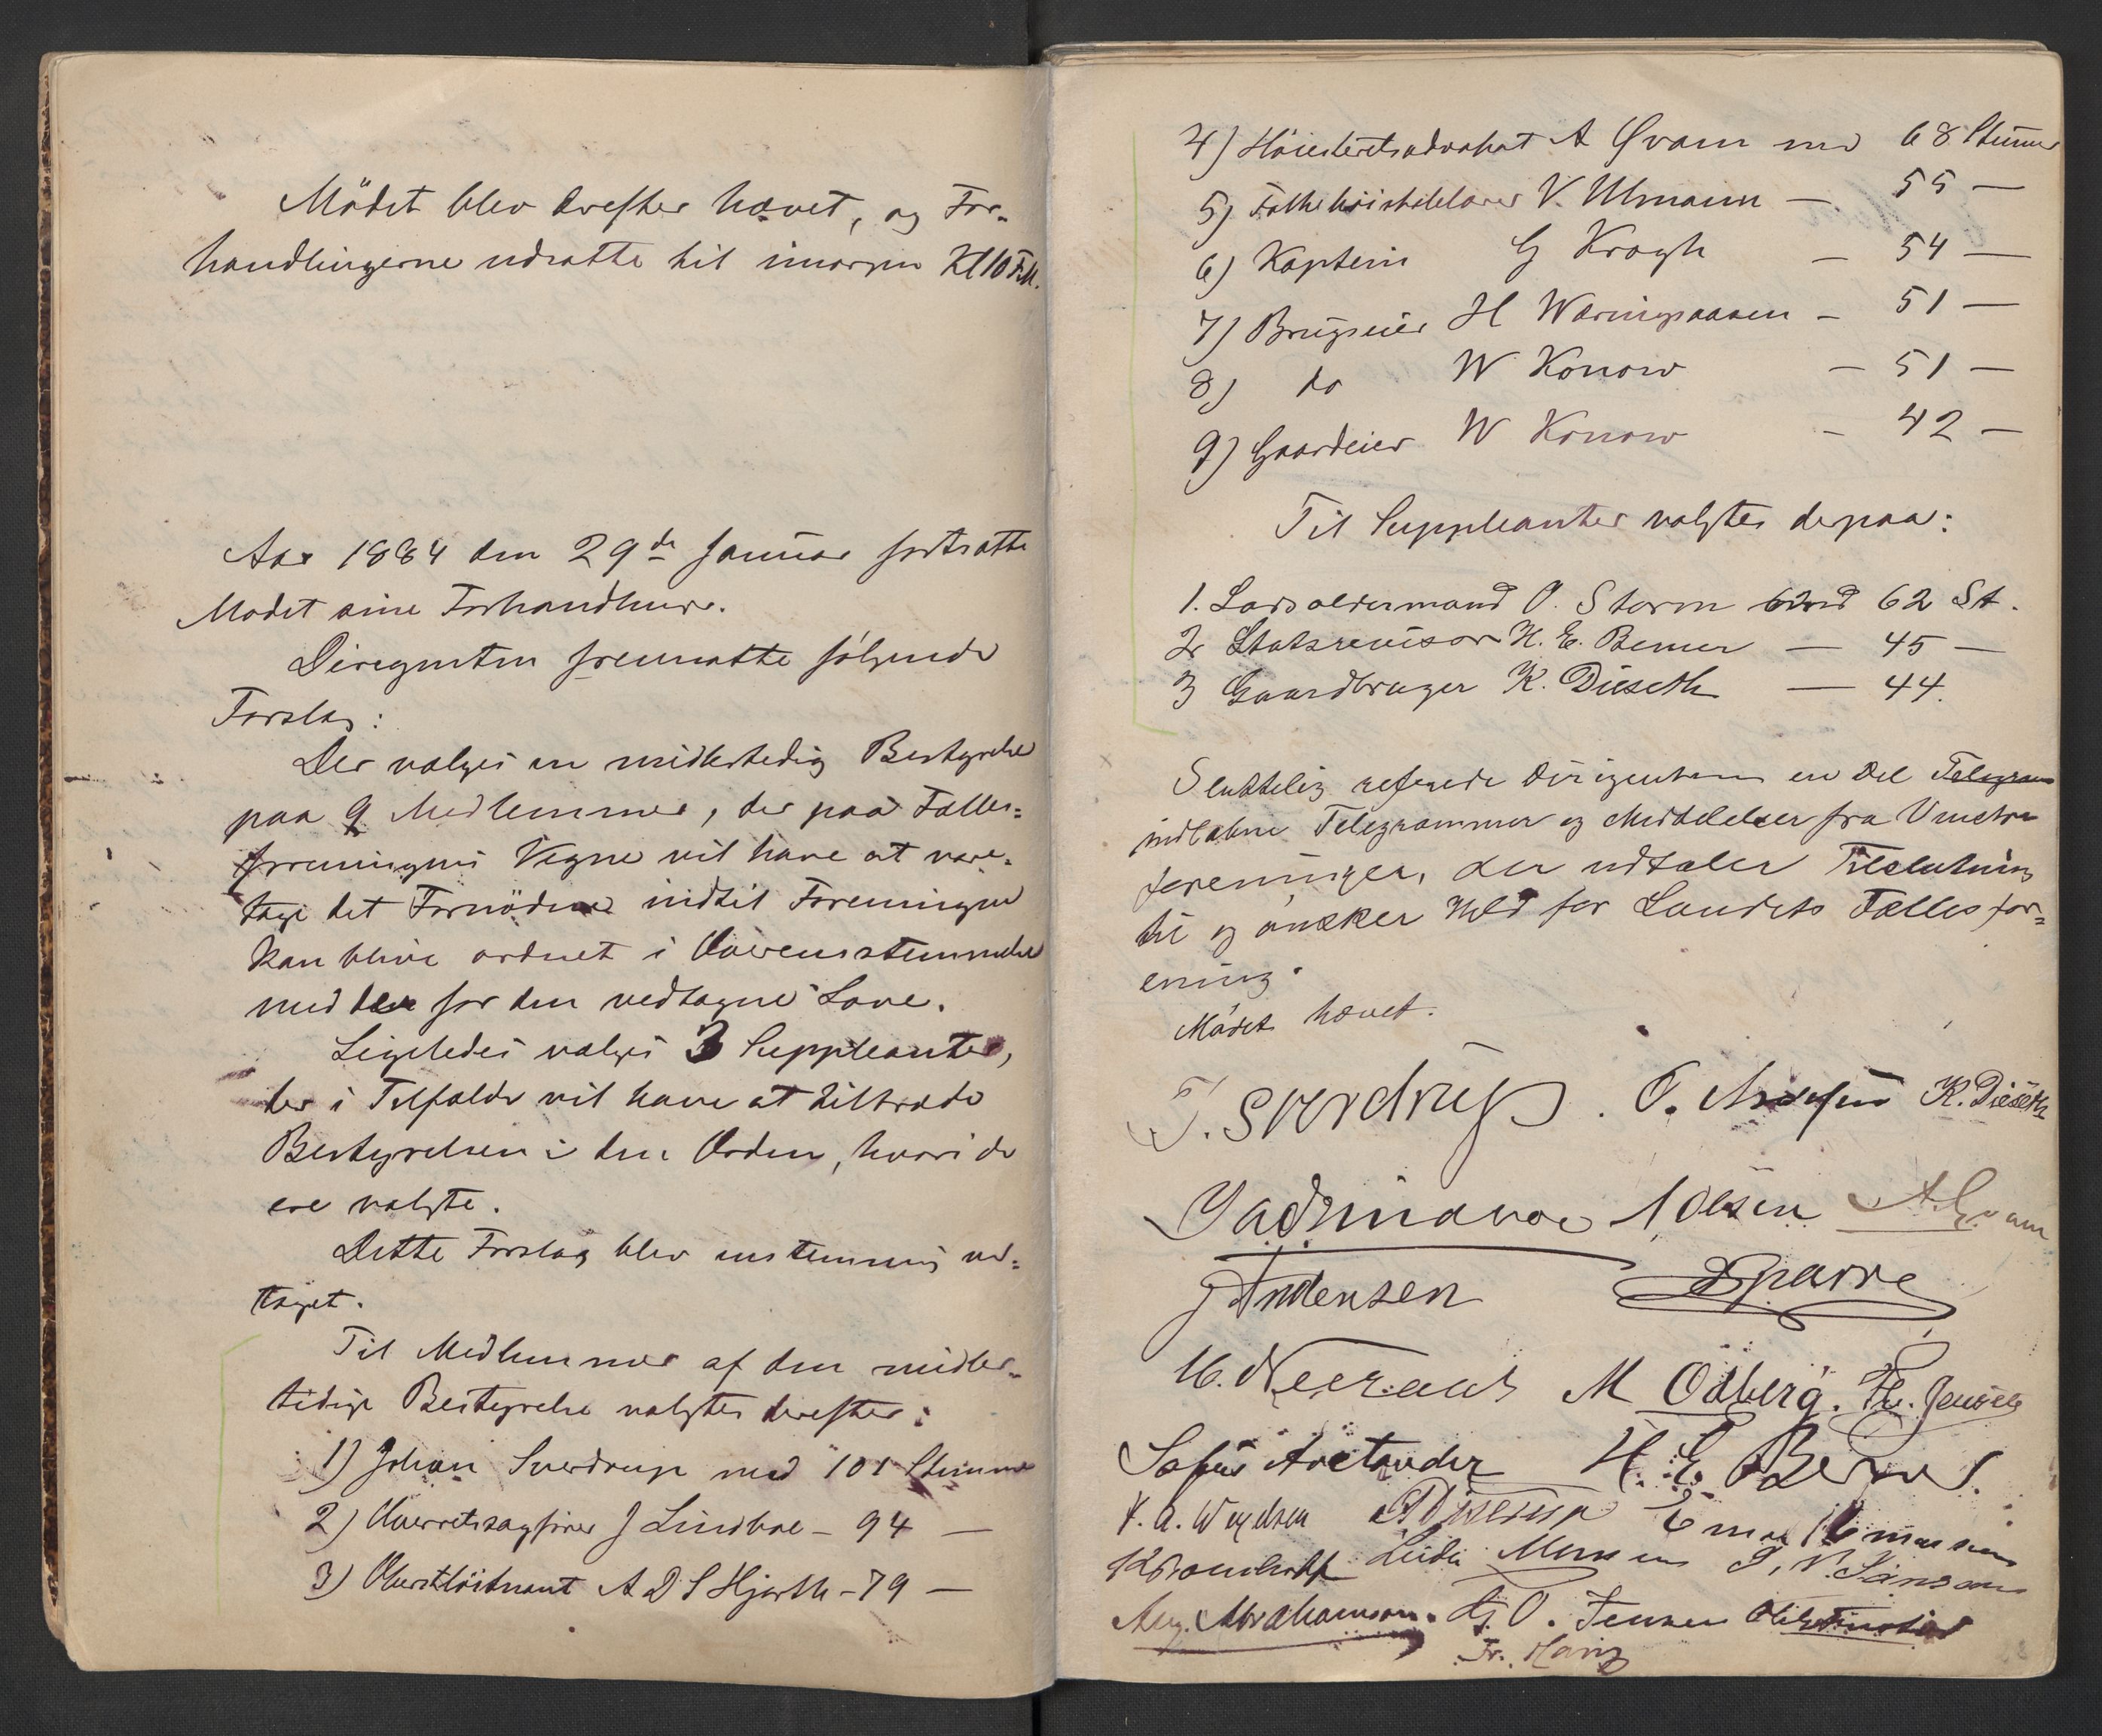 Mödet blev derefter hævet, og For-
handlingerne udsatte til imorgen Kl 10 F.M.
Aar 1884 den 29de Januar fortsatte
Mødet sine Forhandlinger.
Dirigenten fremsatte følgende
Forslag:
Der vælges en midlertidig Bestyrelse
paa 9 Medlemmer, der paa Fælles=
foreningens Vegne vil have at vare=
tage det Fornødne indtil Foreningen
kan blive ordnet i Overensstemmelse
med de for den vedtagne Love.
Ligeledes vælges 3 Suppleanter,
der i Tilfælde vil have at tiltræde
Bestyrelsen i den Orden, hvori de
ere valgte.
Dette Forslag blev enstemmig ved=
taget.
Til Medlemmer af den midler-
tidige Bestyrelse valgtes derefter:
1) Johan Sverdrup med 101 Stemmer
2) Overretssagfører J Lindboe – 94 —
3) Oberstlöitnant A D S Hjorth – 79 —
4) Höiesteretsadvokat A Qvam med 68 Stemmer
5) Folkehöiskolelærer V. Ullmann — 55 —
6) Kaptein G Krogh — 54 —
7) Brugseier H Wæringsaasen – 51 —
8) do W Konow — 51 —
9) Gaardeier W Konow – 42 —
Til Suppleanter valgtes derpaa:
1. Lodsoldermand O. Storm med 62 St.
2 Statsrevisor H. E. Berner — 45 —
3 Gaardbruger K. Dieseth — 44.
Sluttelig referede Dirigenten en Del Telegram
indløbne Telegrammer og Meddelelser fra Venstre
foreninger, der udtaler Tilslutning
til og ønsker Held for Landets Fællesfor=
ening.
Mödet hævet.
J. Sverdrup. O. K. Dieseth
N Olsen A. Qvam
J Andersen Sparre
M Ödberg. Jensen
Sofus Arctander H. E. Berner.
V. A. Wexelsen
Aug. Abrahamson. G. O. Jensen
Fr.